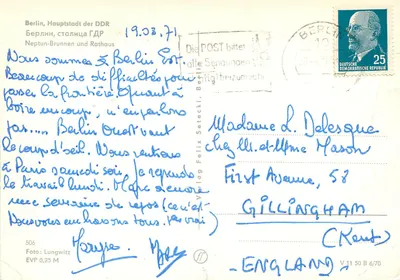 Berlin, Hauptstadt der DDR
Берлин, столица ГДР
Neptun-Brunnen und Rathaus
19.08.71
Nous sommes à Berlin Est.
Beaucoup de difficultés pour
passer la frontière. Quant à
boire un coup, n'en parlons
pas.... Berlin Ouest vaut
le coup d'œil. Nous rentrons
à Paris samedi soir, je reprends
le travail lundi. Marc a encore
une semaine de repos (ce n'est pas vrai)
vous embrassons tous.
506
Foto: Langwitz
EVP 0,20 M
Verlag Felix Setecki, Berlin
Die POST bittet
alle Sendungen
BERLIN
25
DEUTSCHE
DEMOKRATISCHE REPUBLIK
Madame L. Delesque
chez M. et Mme Mason
First Avenue, 58
GILLINGHAM
(Kent)
ENGLAND
V 11 50 B 6/70